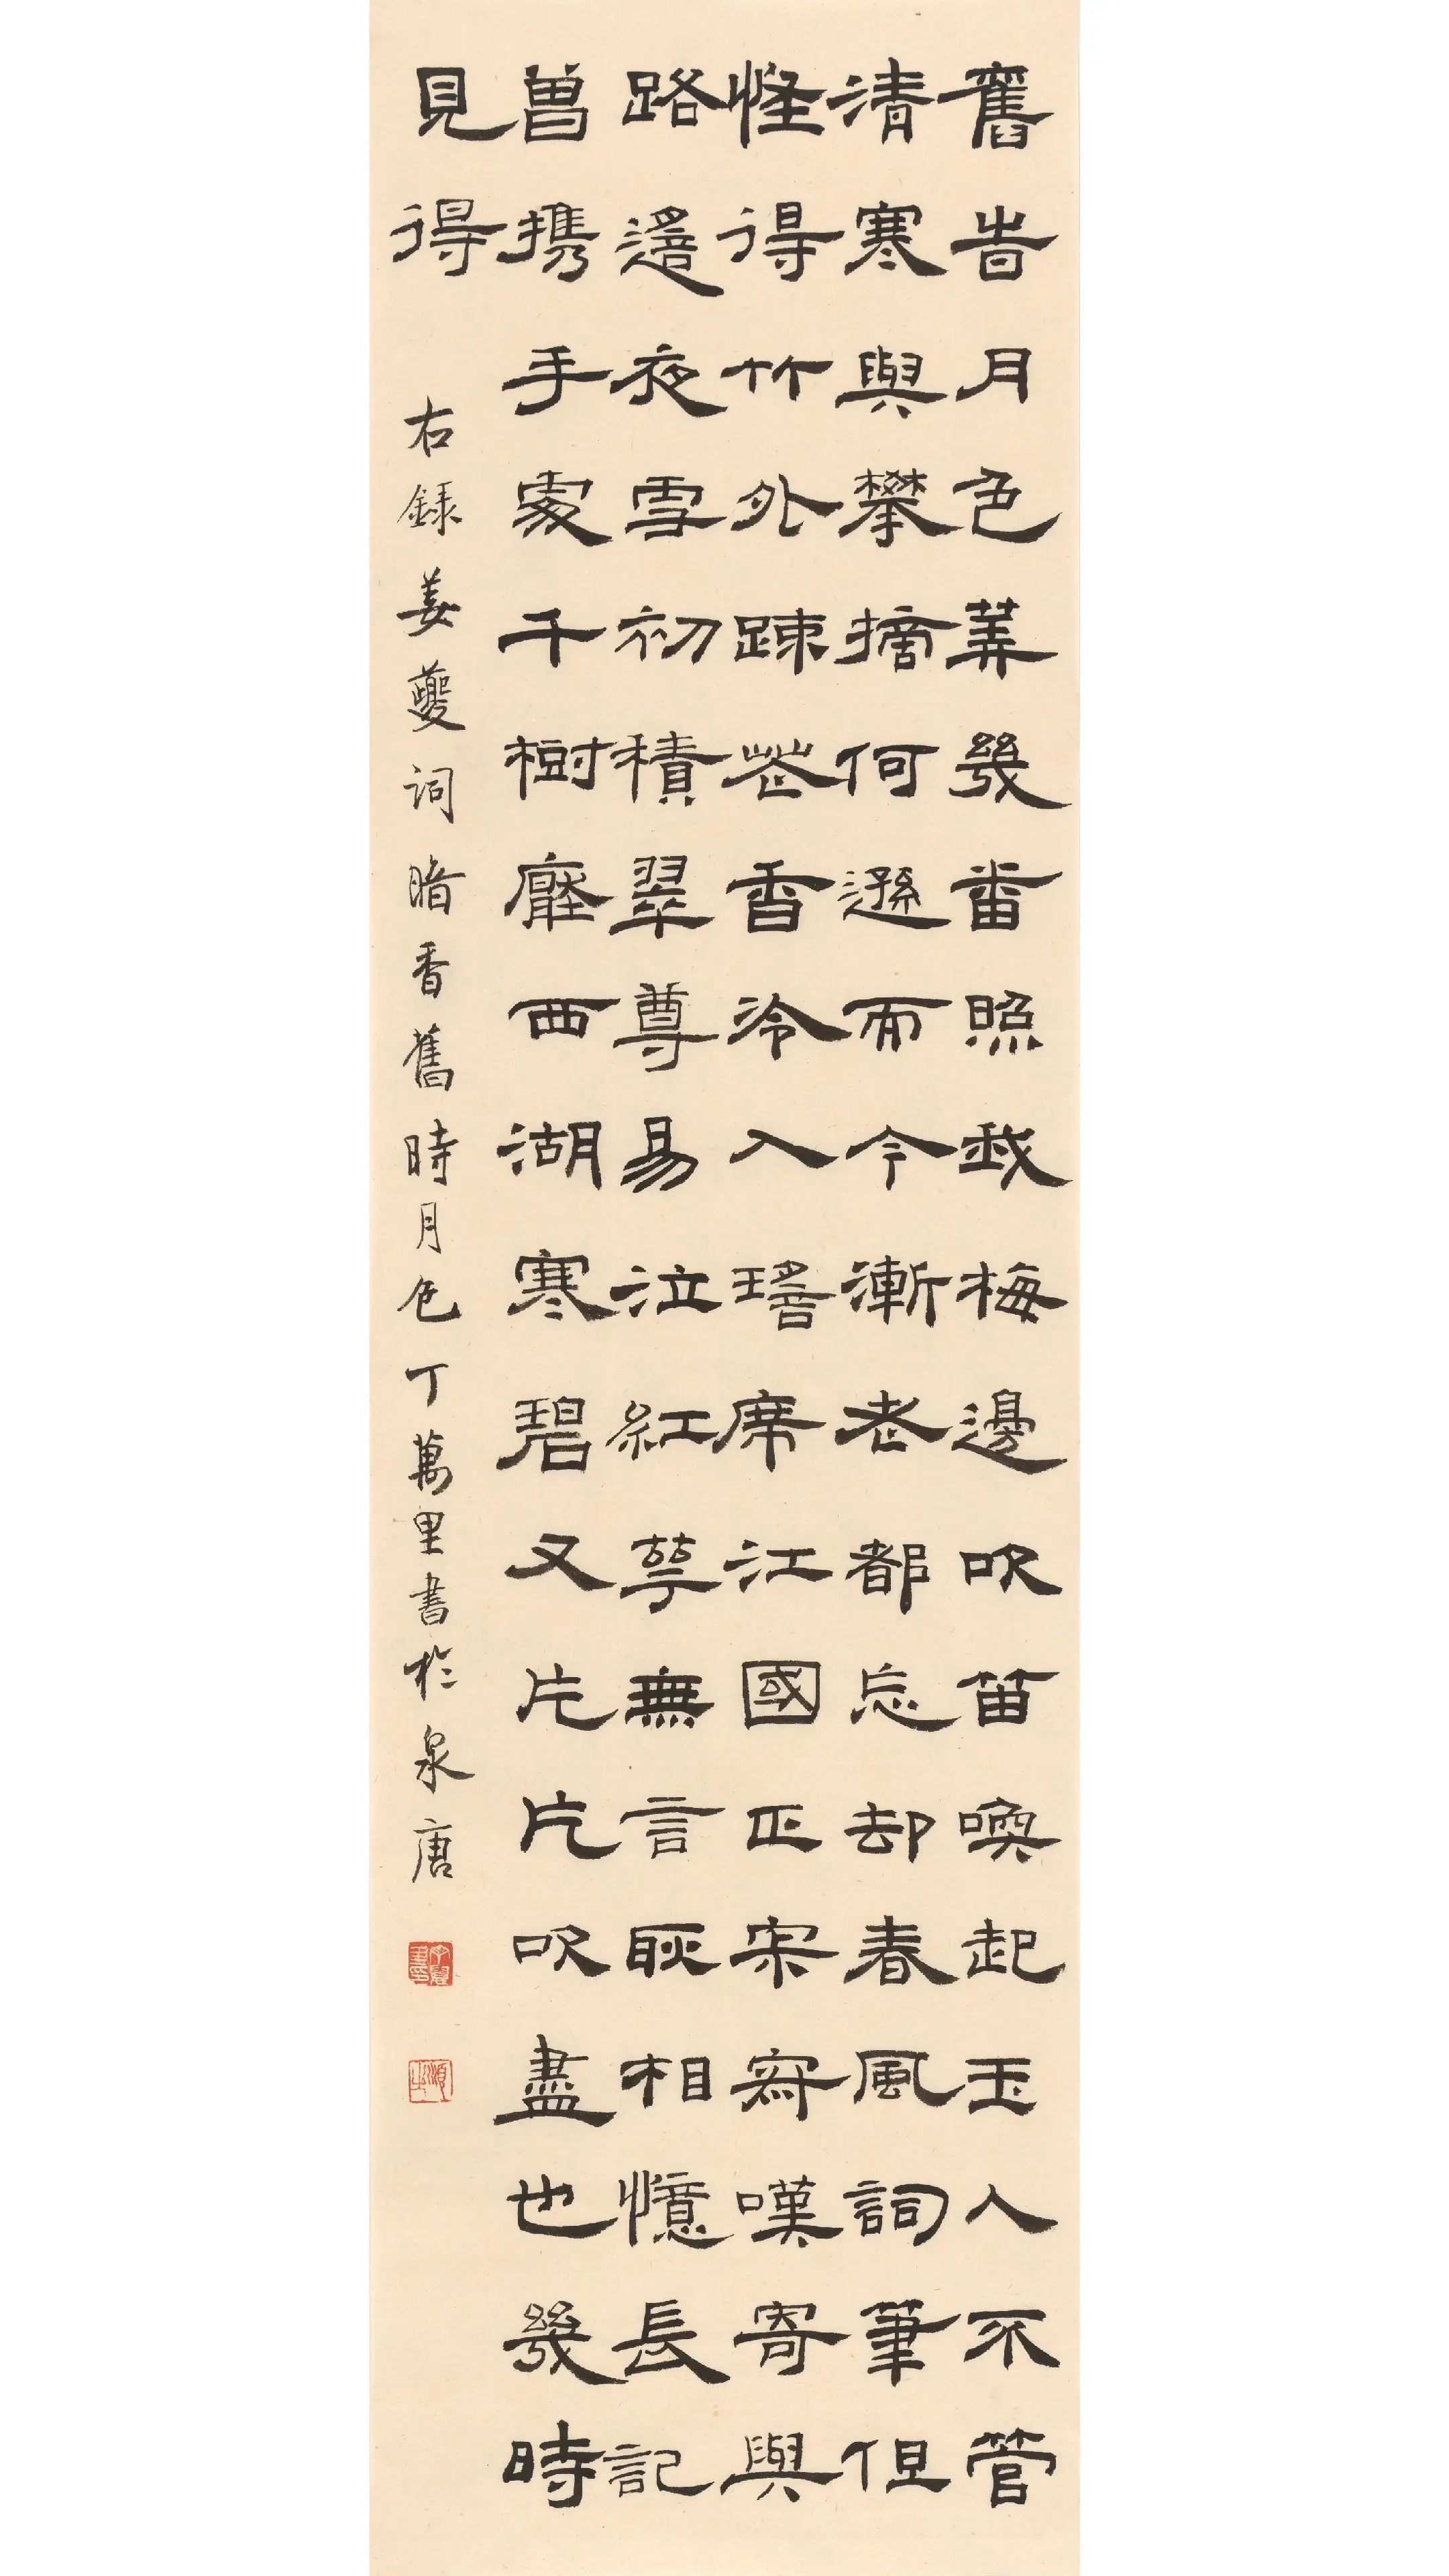 舊旹月色算幾番照我梅邊吹笛喚起玉人不管
清寒與攀摘何遜而今漸老都忘却春風詞筆但
怪得竹外疎花香冷入瑤席江國正寂寂嘆寄與
路遙夜雪初積翠尊易泣紅萼無言耿相憶長記
曾携手處千樹壓西湖寒碧又片片吹盡也幾時
見得
右錄姜夔詞暗香舊時月色丁萬里書於泉唐